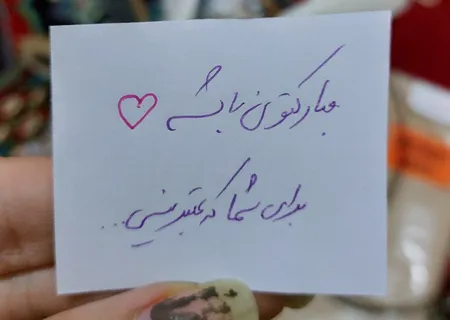 مبارکتون باشه ♡
برای شما که